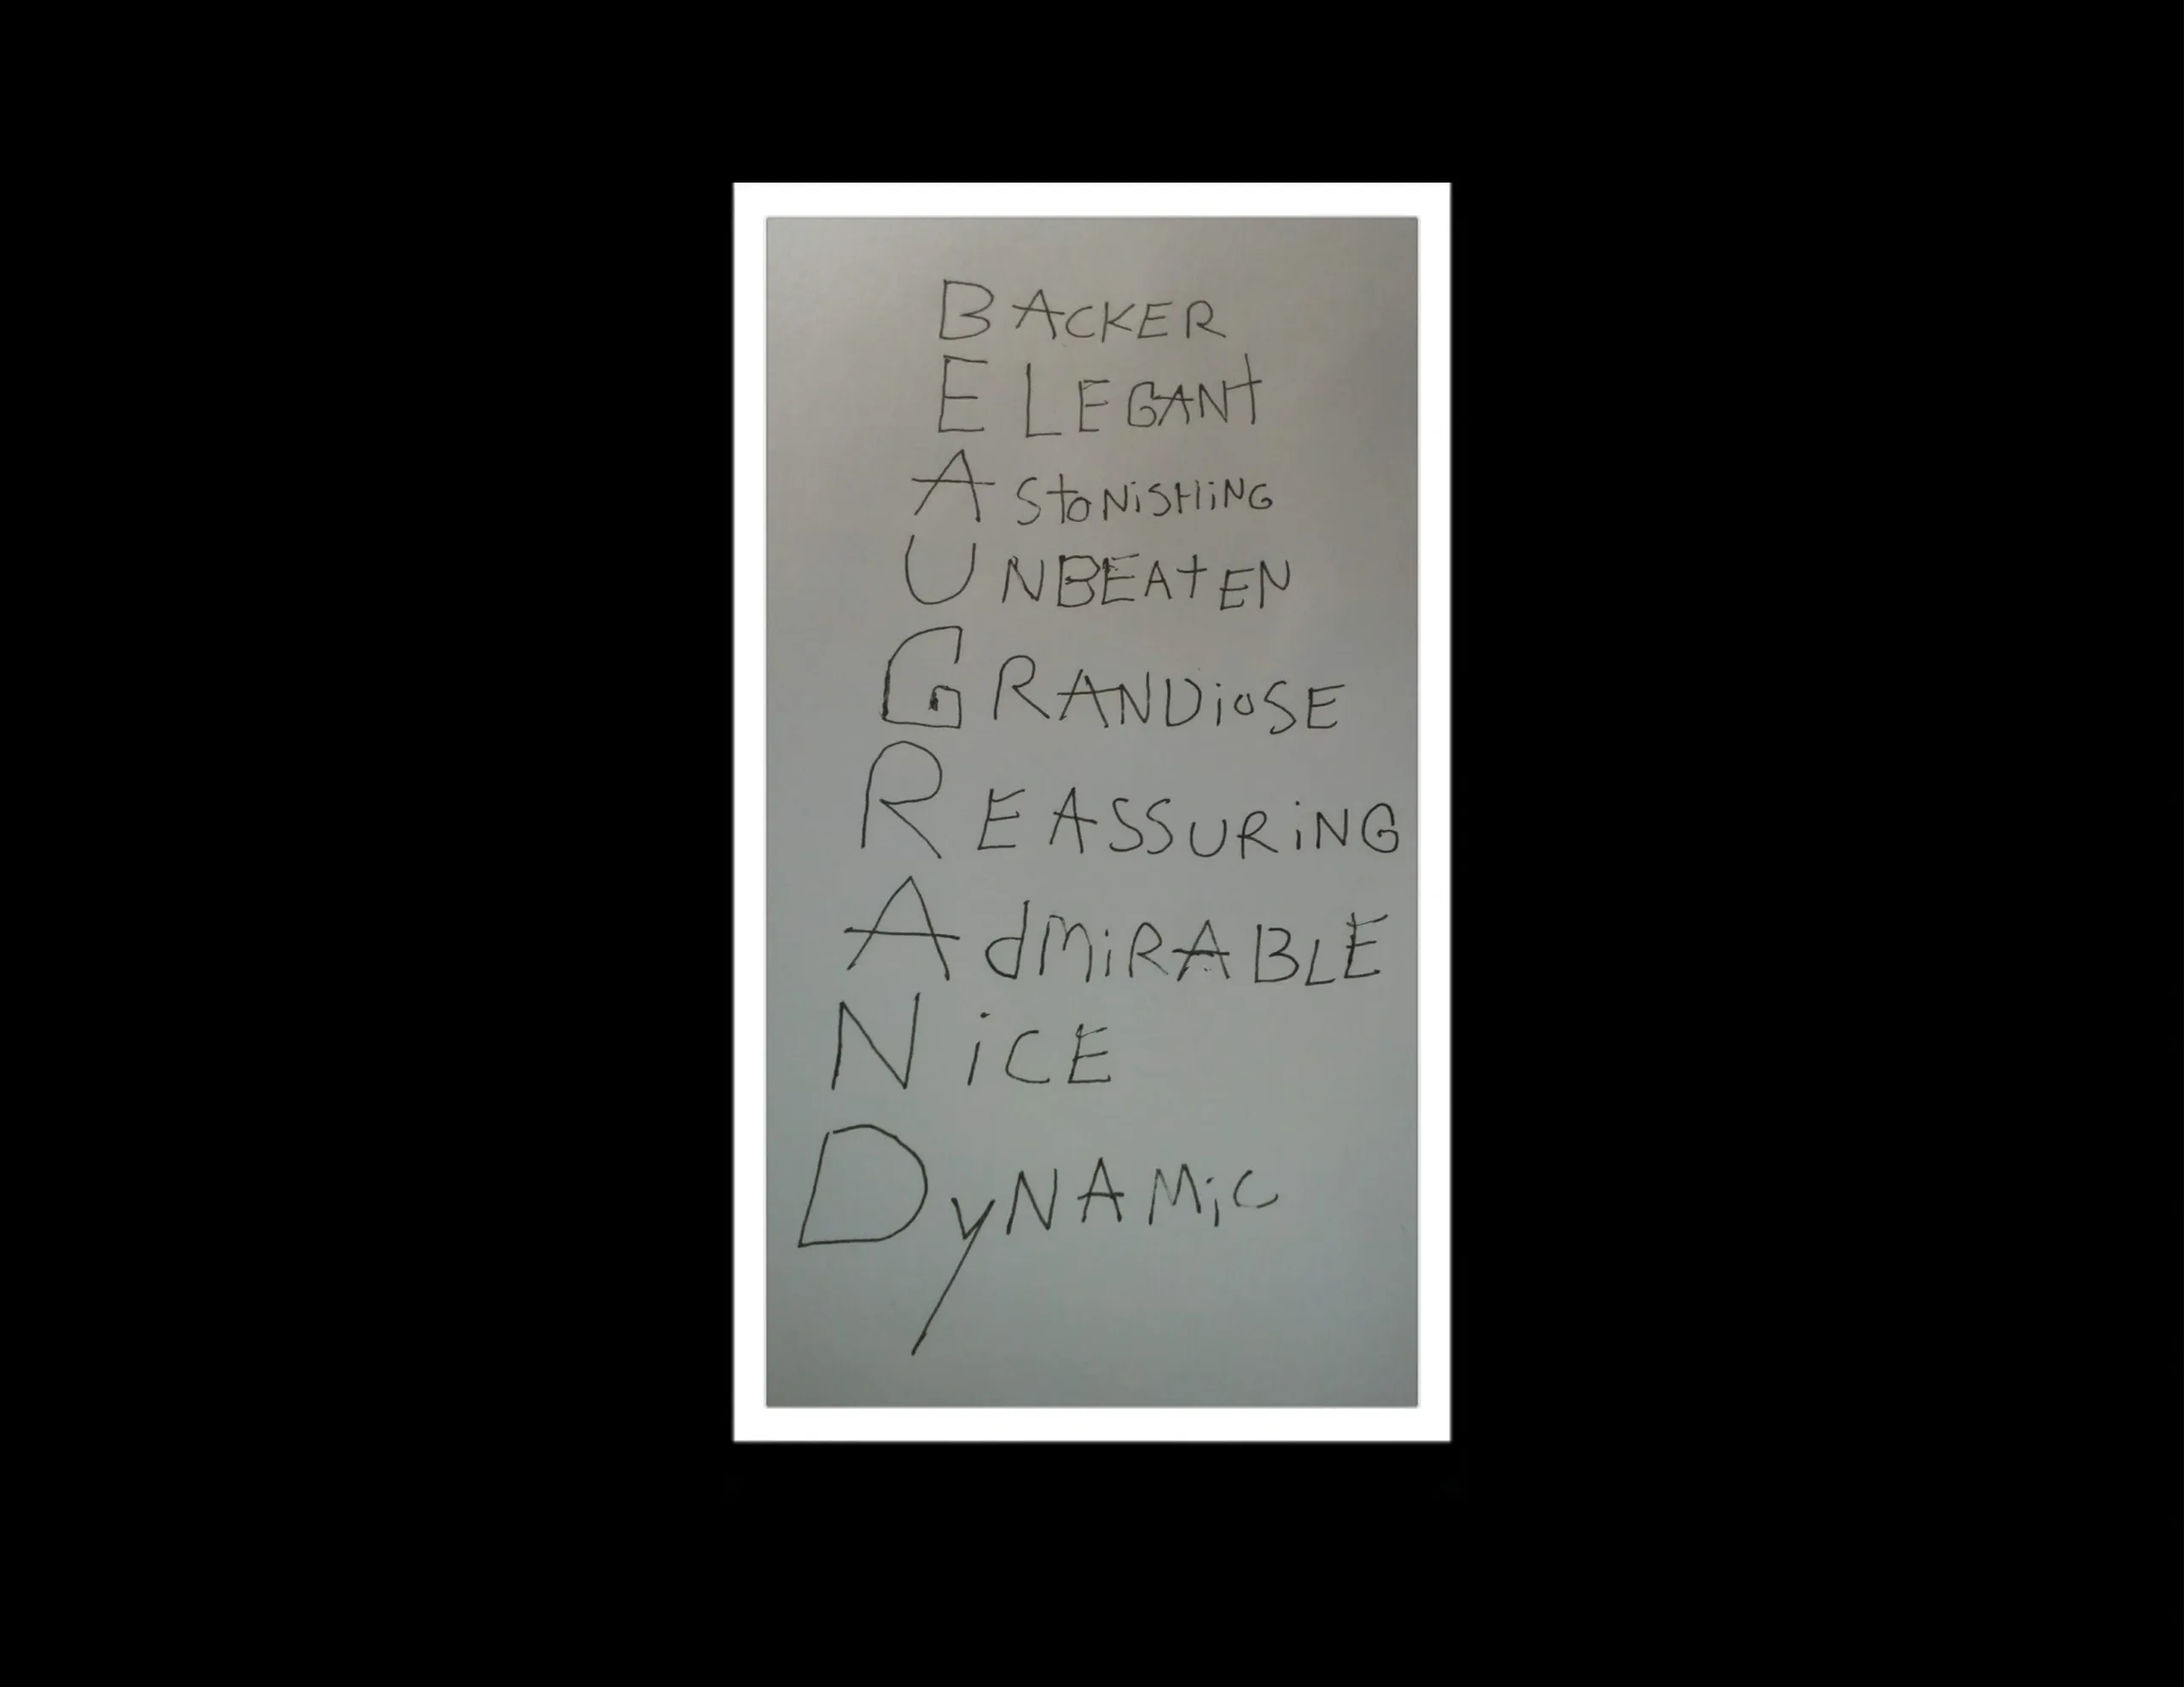 BACKER
ELEGANT
AStONiSHiNG
UNBEAtEN
GRANDioSE
REASSURiNG
AdMiRABLE
NiCE
DyNAMiC